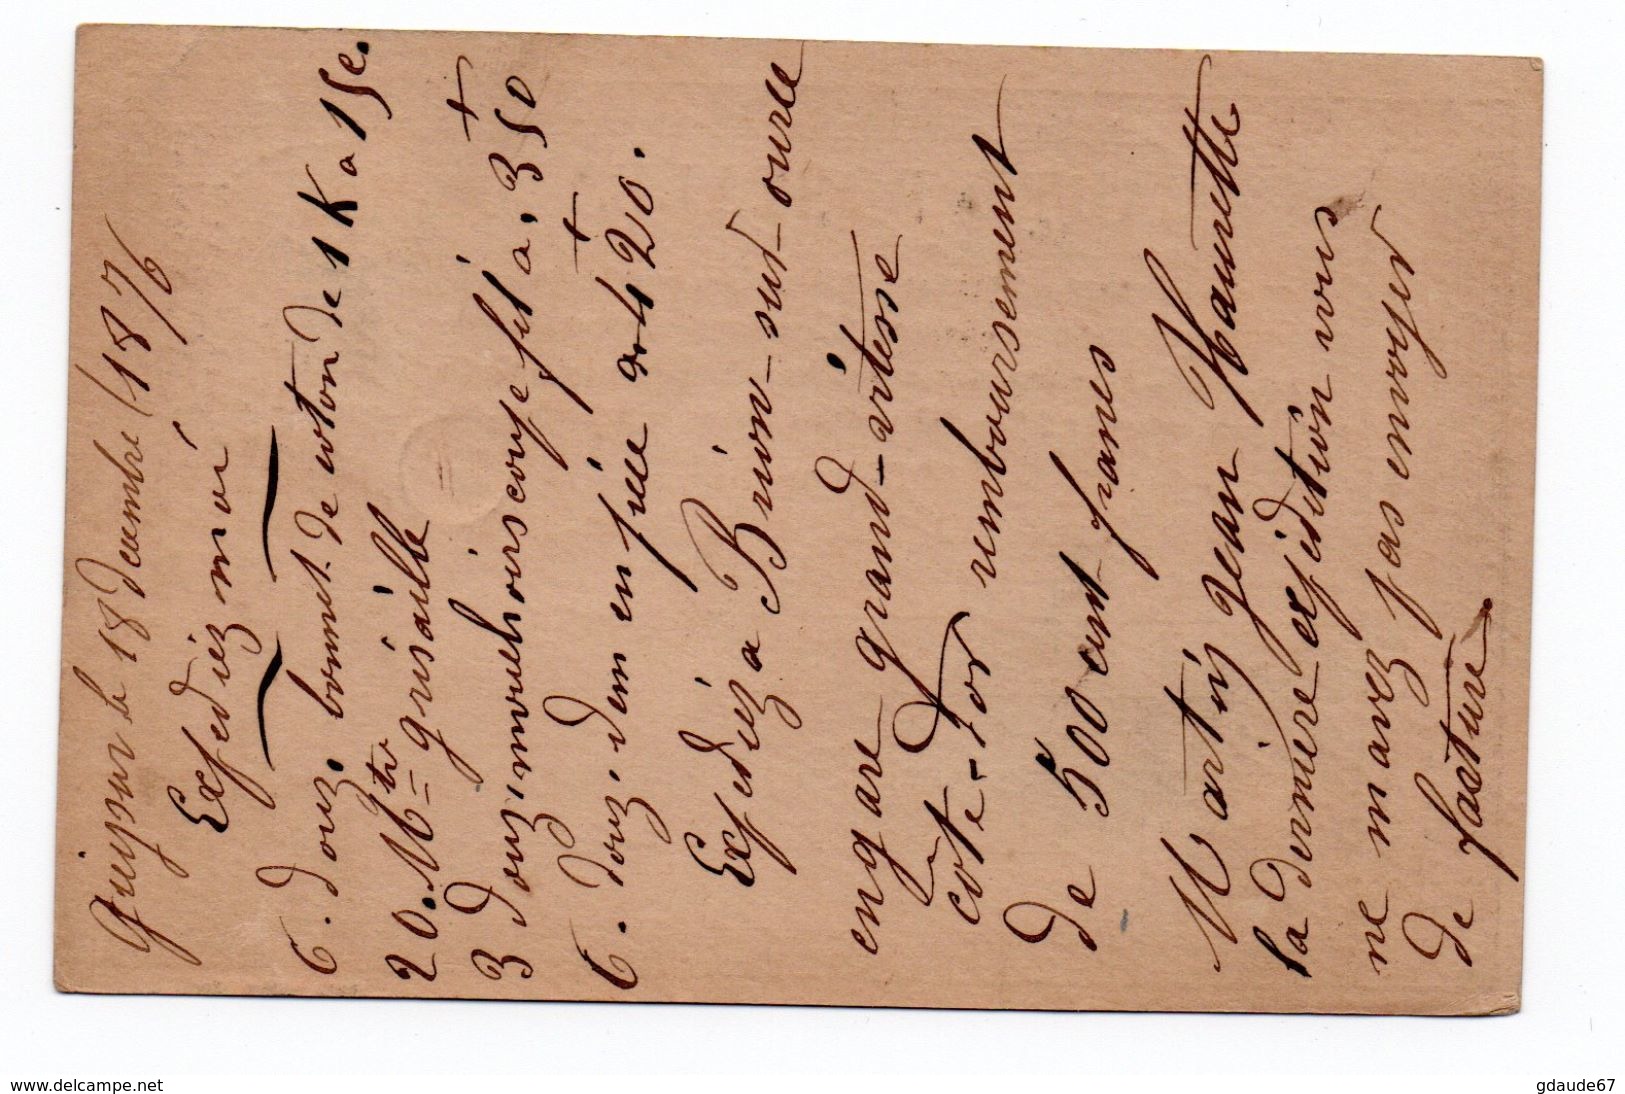 quiepar le 18 decembre (1876
Expediez moi
6. douz. bonnet. de coton de 1 K a 15 c.
20. Mtre grisaille
3 douz. mouchoirs couse fil a, 3 50
6. douz. dem en piece a 4 20.
Expediez a Brion-sur-ource
en gare grand-vitesse
cote-dor remboursement
de 500 cent francs
Martin jean Haurette
la derniere expedition vous
ne mavez pas envoyer
de facture
www.delcampe.net
gdaude67